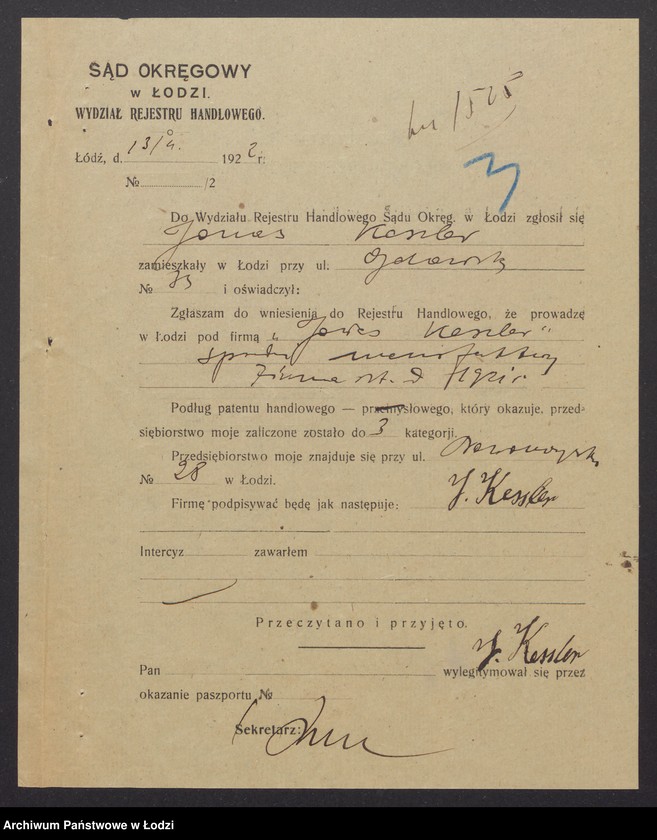 SĄD OKRĘGOWY
w ŁODZI.
WYDZIAŁ REJESTRU HANDLOWEGO.
Łódź, d. 13/ 1922 r.
№ /2
Do Wydziału Rejestru Handlowego Sądu Okręg. w Łodzi zgłosił się
Jonas Kessler
zamieszkały w Łodzi przy ul.
№ i oświadczył:
Zgłaszam do wniesienia do Rejestru Handlowego, że prowadzę
w Łodzi pod firmą „Jonas Kessler"
Podług patentu handlowego — przemysłowego, który okazuje, przed-
siębiorstwo moje zaliczone zostało do 3 kategorji.
Przedsiębiorstwo moje znajduje się przy ul.
№ 28 w Łodzi.
Firmę podpisywać będę jak następuje: J. Kessler
Intercyz zawarłem
Przeczytano i przyjęto.
J. Kessler
Pan wylegitymował się przez
okazanie paszportu №
Sekretarz:
Archiwum Państwowe w Łodzi